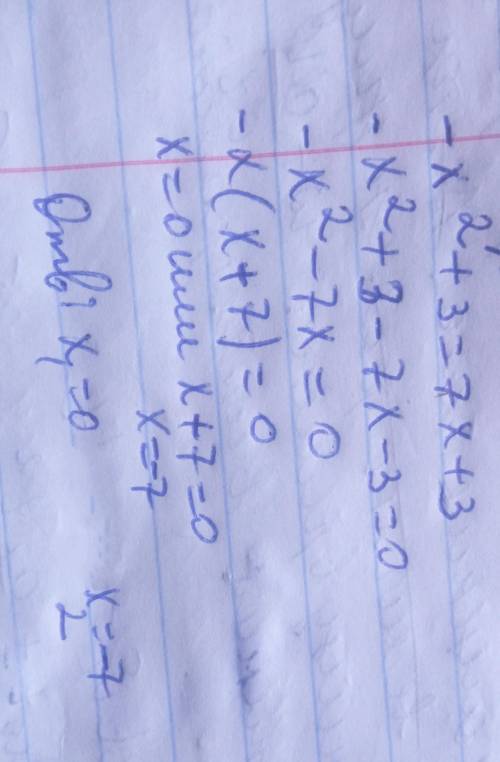 -x²+3=7x+3
-x²+3-7x-3=0
-x²-7x=0
-x(x+7)=0
x=0 или x+7=0
x=-7
Отв: x₁=0 x₂=-7